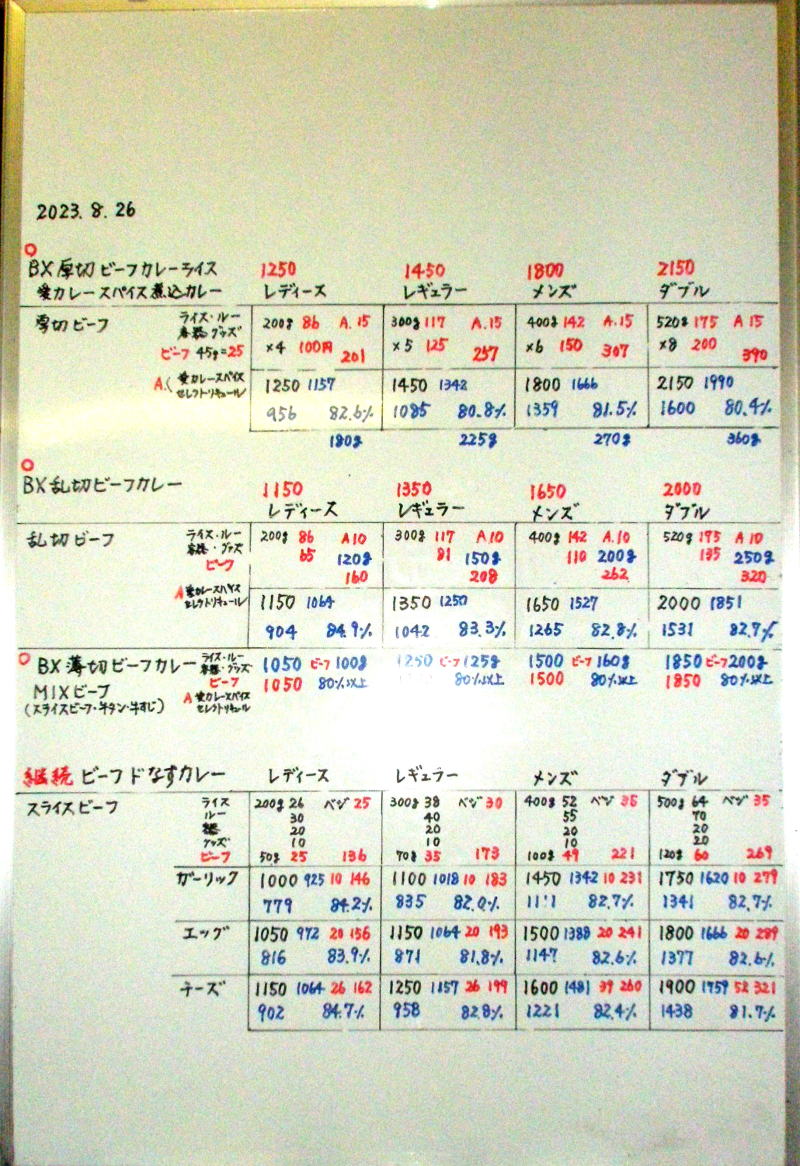 2023. 8. 26
BX厚切ビーフカレーライス 1250 1450 1800 2150
愛カレースパイス煮込カレー レディース レギュラー メンズ ダブル
厚切ビーフ ライス・ルー 200g 86 A.15 300g 117 A.15 400g 142 A.15 520g 175 A 15
容器・グッズ ×4 100円 201 ×5 125 257 ×6 150 307 ×8 200 390
ビーフ 45g=25
A.(愛カレースパイス 1250 1157 1450 1342 1800 1666 2150 1990
セレクトリキュール 956 82.6% 1085 80.8% 1359 81.5% 1600 80.4%
180g 225g 270g 360g
BX乱切ビーフカレー 1150 1350 1650 2000
レディース レギュラー メンズ ダブル
乱切ビーフ ライス・ルー 200g 86 A10 300g 117 A10 400g 142 A.10 520g 175 A 10
容器・グッズ 65 120g 81 150g 110 200g 135 250g
ビーフ 160 208 262 320
A 愛カレースパイス 1150 1064 1350 1250 1650 1527 2000 1851
セレクトリキュール 904 84.9% 1042 83.3% 1265 82.8% 1531 82.7%
BX薄切ビーフカレー ライス・ルー 1050 ビーフ100g 1250 ビーフ125g 1500 ビーフ160g 1850 ビーフ200g
容器・グッズ
MIXビーフ ビーフ 1050 80%以上 80%以上 1500 80%以上 1850 80%以上
(スライスビーフ・牛タン・牛すじ) A 愛カレースパイス
セレクトリキュール
継続 ビーフドなすカレー レディース レギュラー メンズ ダブル
スライスビーフ ライス 200g 26 ベジ 25 300g 38 ベジ 30 400g 52 ベジ 35 500g 64 ベジ 35
ルー 30 40 55 70
容器 20 20 20 20
グッズ 10 10 10 20
ビーフ 50g 25 136 70g 35 173 100g 49 221 120g 60 269
ガーリック 1000 925 10 146 1100 1018 10 183 1450 1342 10 231 1750 1620 10 279
779 84.2% 835 82.0% 1111 82.7% 1341 82.7%
エッグ 1050 972 20 156 1150 1064 20 193 1500 1388 20 241 1800 1666 20 289
816 83.9% 871 81.8% 1147 82.6% 1377 82.6%
チーズ 1150 1064 26 162 1250 1157 26 199 1600 1481 39 260 1900 1759 52 321
902 84.7% 958 82.8% 1221 82.4% 1438 81.7%